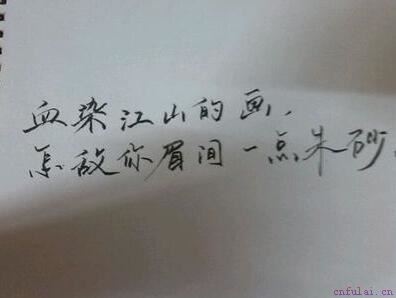 血染江山的画,
怎敌你眉间一点朱砂.
cnfulai.cn